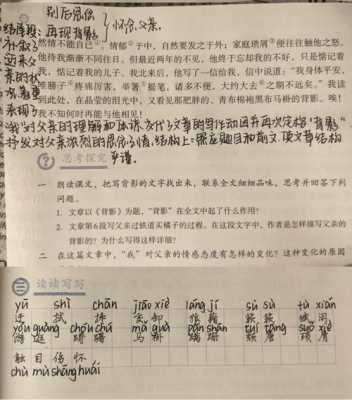 别后思念
再现背影
怀念父亲
结尾段:
然情不能自已。情郁于中,自然要发之于外;家庭琐屑便往往触他之怒。
他待我渐渐不同往日。但最近两年的不见,他终于忘却我的不好,只是惦记着
我,惦记着我的儿子。我北来后,他写了一信给我,信中说道:“我身体平安,
惟膀子疼痛厉害,举箸提笔,诸多不便,大约大去之期不远矣。”我读
到此处,在晶莹的泪光中,又看见那肥胖的、青布棉袍黑布马褂的背影。唉!
我不知何时再能与他相见!
“我”对父亲的理解和
抒发对父亲浓烈的思念之情。结构上:照应题目和前文,使文章结构
严谨。
思考探究
一 朗读课文,把写背影的文字找出来,联系全文细细品味,思考并回答下列
问题。
1. 文章以《背影》为题,“背影”在全文中起了什么作用?
2. 文章第6段写父亲过铁道买橘子的过程。在这段文字中,作者是怎样描写父亲的
背影的?为什么写得这样详细?
二 在这篇文章中,“我”对父亲的情感态度有怎样的变化?这种变化的原因
三 读读写写
yū shì chān jiāo xiè láng jí sù sù tù xián
迂 拭 搀 交卸 狼藉 簌簌 赋闲
chóu chú mǎ guà pán shān tuí táng suǒ xiè
踌躇 马褂 蹒跚 颓唐 琐屑
触目伤怀
chù mù shāng huái